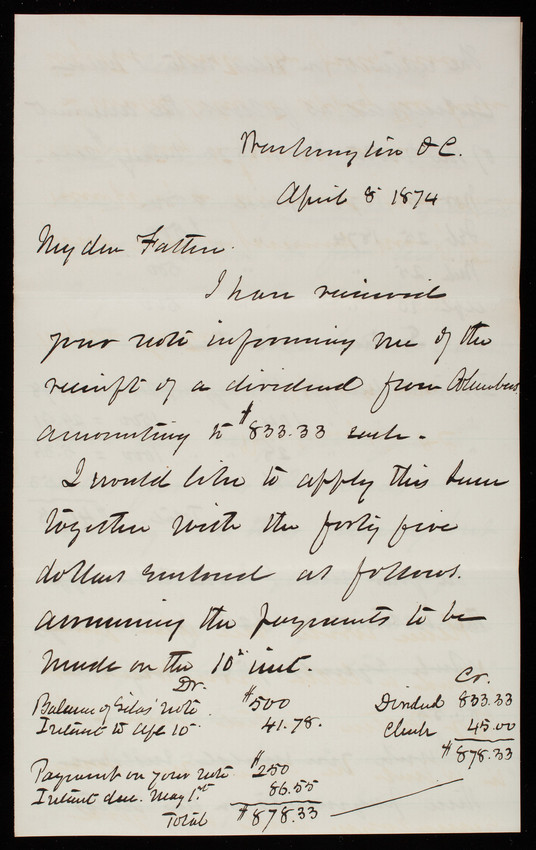 Washington D C.
April 8 1874
My dear Father.
I have received
your note informing me of the
receipt of a dividend from Columbus
amounting to $833.33 each.
I would like to apply this sum
together with the forty five
dollars enclosed as follows.
assuming the payments to be
made on the 10th inst.
Dr. Cr.
Balance of Silas' note $500 Dividend 833.33
Interest to Apl 10 41.78. Check 45.00
$878.33
Payment on your note $250
Interest due May 1st 86.55
Total $878.33